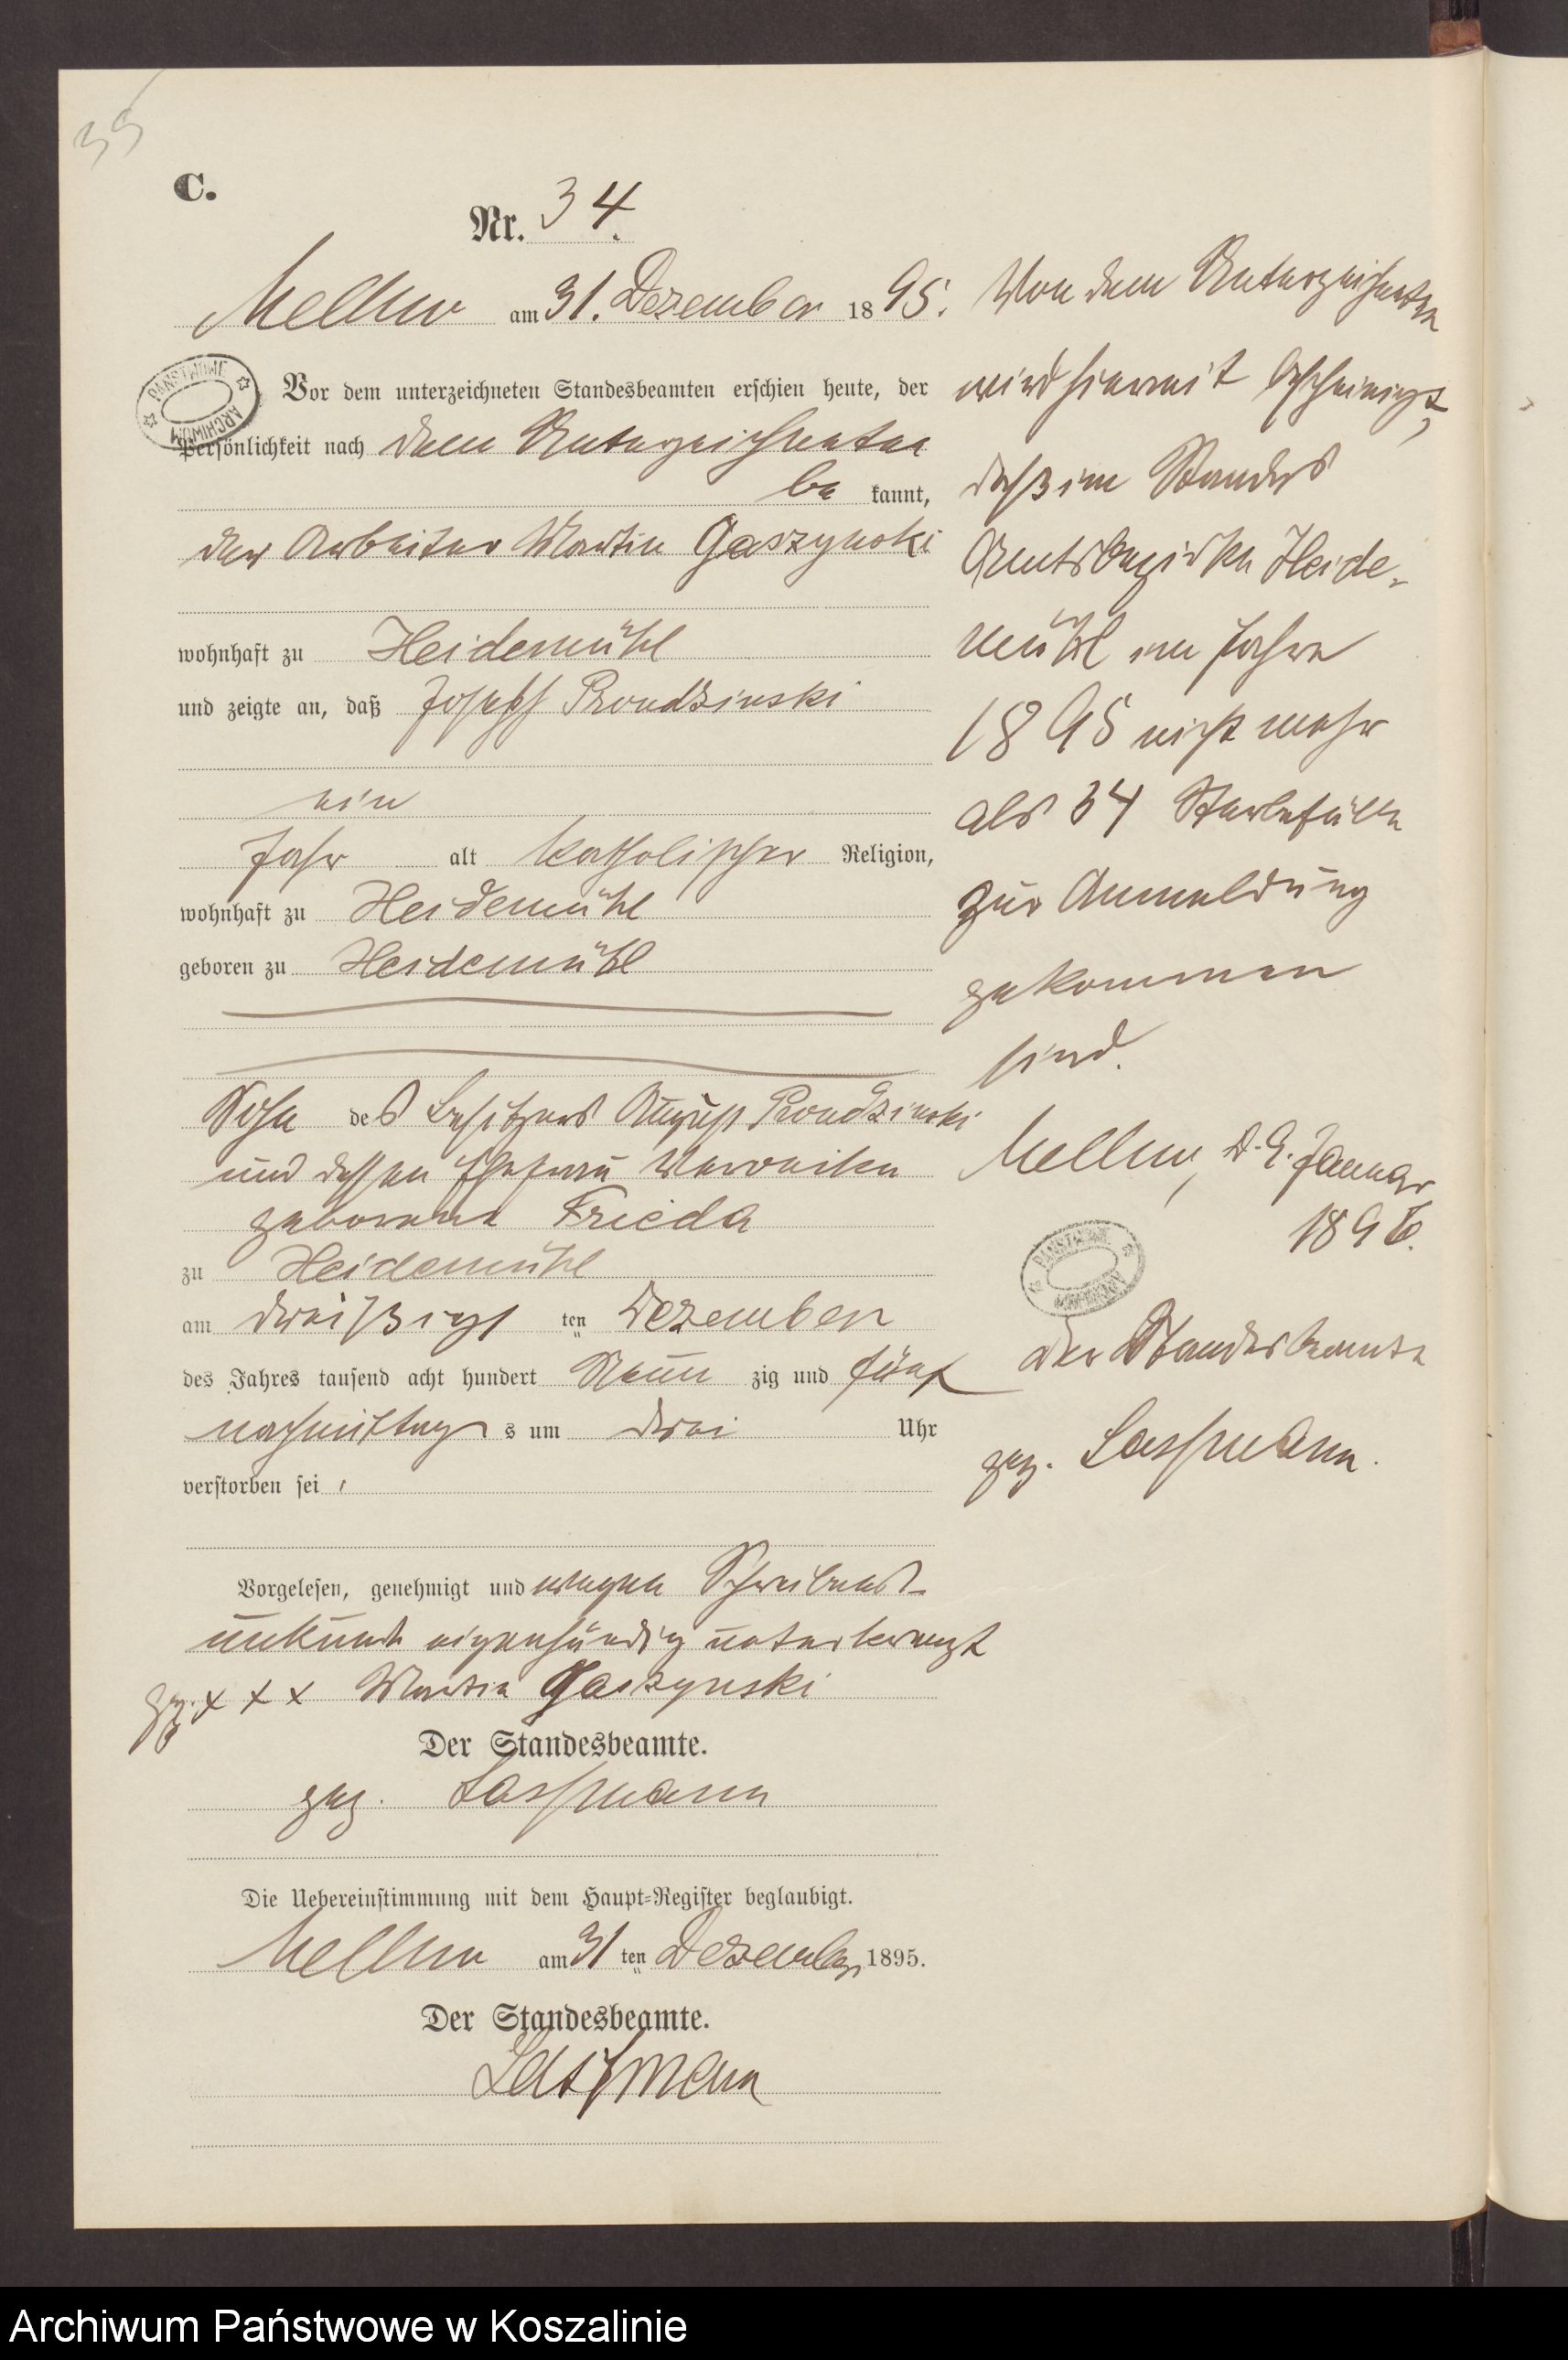 35
C.
Nr. 34.
Mellin am 31. Dezember 1895.
Vor dem unterzeichneten Standesbeamten erschien heute, der
Persönlichkeit nach dem Unterzeichneten
be kannt,
der Arbeiter Martin Gaszynski
wohnhaft zu Heidemühl
und zeigte an, daß Joseph Prondzinski
ein
Jahr alt katholischer Religion,
wohnhaft zu Heidemühl
geboren zu Heidemühl
Sohn des Besitzers August Prondzinski
und dessen Ehefrau Weronika
geborene Frieda
zu Heidemühl
am dreißigs ten Dezember
des Jahres tausend acht hundert Neun zig und fünf
nachmittags um drei Uhr
verstorben sei,
Vorgelesen, genehmigt und wegen Schreibens-
unkunde eigenhändig unterkreuzt
gez. x x x Martin Gaszynski
Der Standesbeamte.
gez. Lassmann
Die Uebereinstimmung mit dem Haupt-Register beglaubigt.
am 31 ten Dezember 1895.
Der Standesbeamte.
Lassmann
Von dem Unterzeichneten
wird hiermit bescheinigt,
daß im Standes
Amtsbezirke Heide-
mühl im Jahre
1895 nicht mehr
als 34 Sterbefälle
zur Anmeldung
gekommen
sind.
d. Januar
1896.
Der Standesbeamte
gez. Lassmann.
PAŃSTWOWE ARCHIWUM
PAŃSTWOWE ARCHIWUM
Archiwum Państwowe w Koszalinie